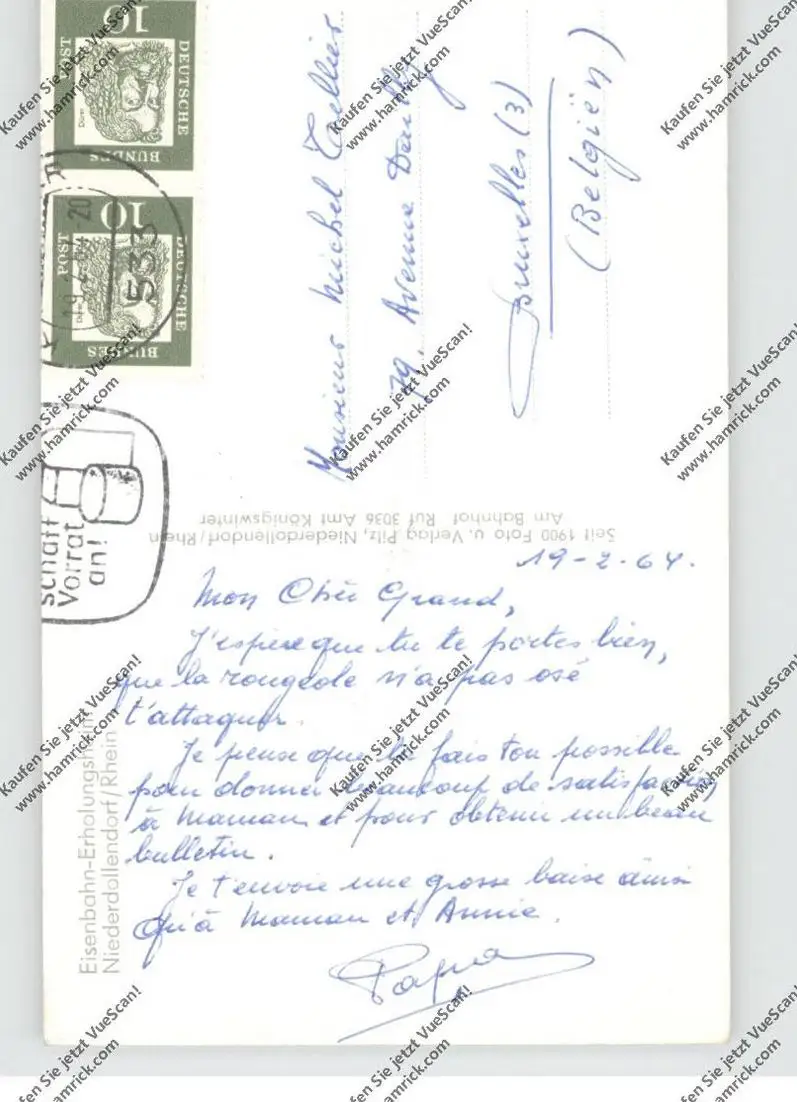 19-2-64.
Mon Cher Grand,
J'espère que tu te portes bien,
que la rougeole n'a pas osé
t'attaquer.
Je pense que tu fais ton possible
pour donner beaucoup de satisfaction
à Maman et pour obtenir un beau
bulletin.
Je t'envoie une grosse baise ainsi
qu'à Maman et Annie.
Papa
Monsieur Michel
79, Avenue
Bruxelles (3)
(Belgiën)
Eisenbahn-Erholungsheim
Niederdollendorf/Rhein
Seit 1900 Foto u. Verlag Pitz, Niederdollendorf/Rhein
Am Bahnhof Ruf 3036 Amt Königswinter
DEUTSCHE
BUNDES
POST
10
Dürer
DEUTSCHE
BUNDES
POST
10
533
schaff
Vorrat
an!
Kaufen Sie jetzt VueScan!
www.hamrick.com